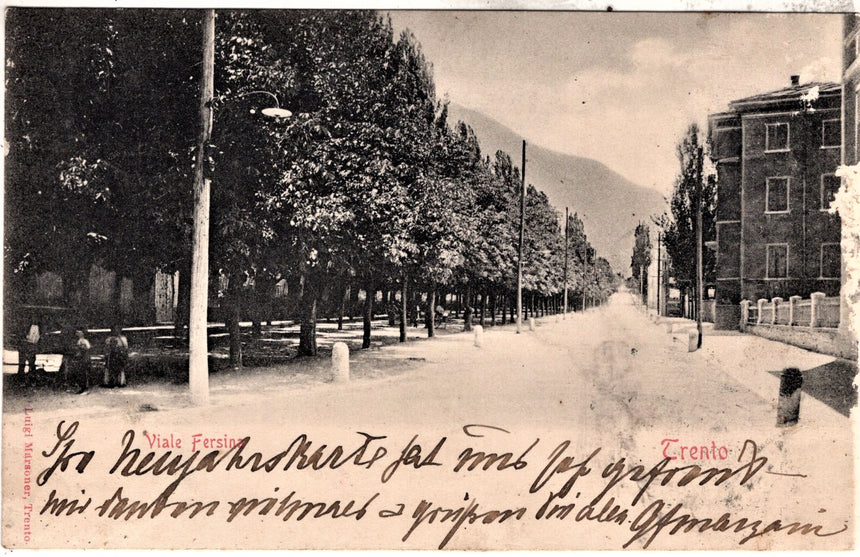 Viale Fersina
Trento
Luigi Marsoner, Trento.
Ihre Neujahrskarte hat uns sehr gefreut
wir danken vielmals & grüßen Sie alle